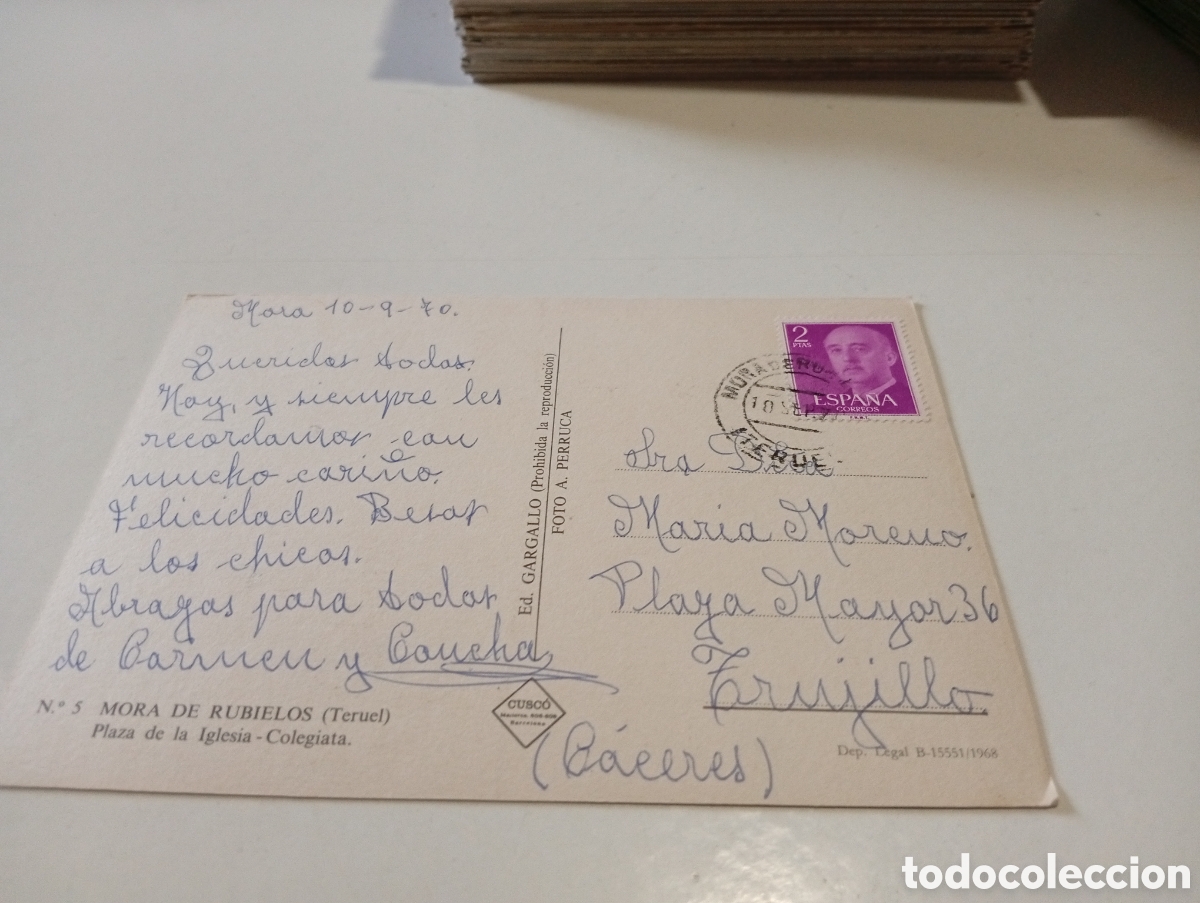 Mora 10-9-70.
Queridas todas.
Hoy, y siempre les
recordamos con
mucho cariño.
Felicidades. Besos
a los chicos.
Abrazos para todos
de Carmen y Concha
Nº 5 MORA DE RUBIELOS (Teruel)
Plaza de la Iglesia - Colegiata.
Ed. GARGALLO (Prohibida la reproducción)
FOTO A. PERRUCA
CUSCÓ
Barcelona
2
PTAS
ESPAÑA
CORREOS
MORA DE RU
10 SEP
TERUEL
Sra
Maria Moreno.
Plaza Mayor 36
Trujillo.
(Cáceres)
Dep. Legal B-15551/1968
todocoleccion